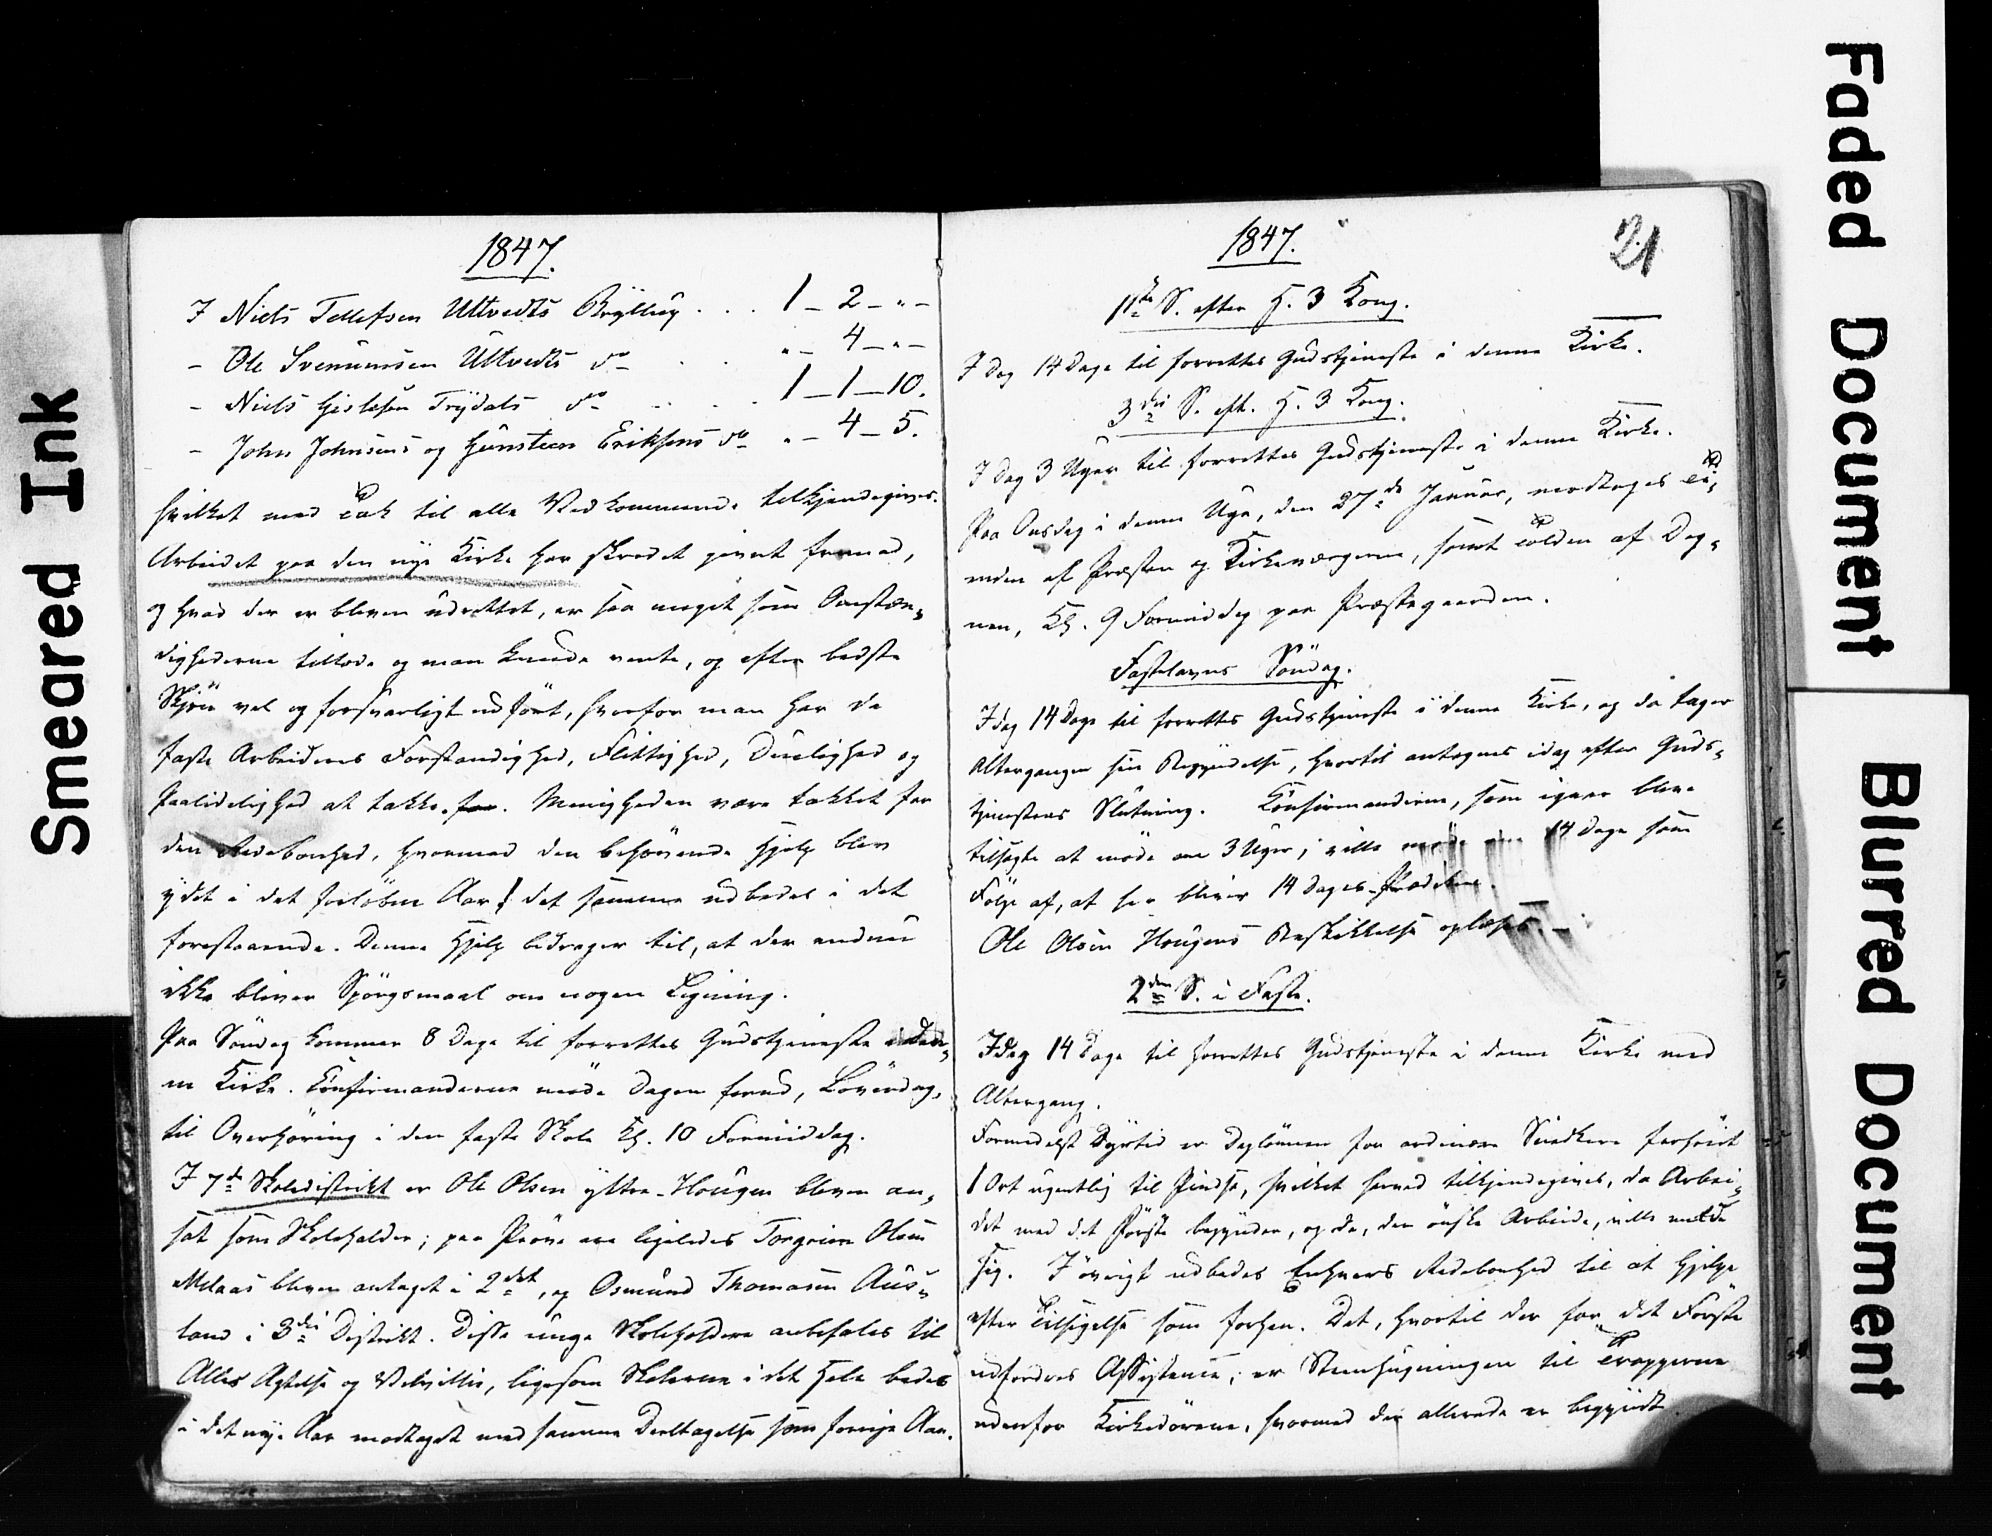 Smeared Ink
1847.
I Niels Tellefsen Ultvedts Bryllup . . . 1 – 2 – „ –
– Ole Svennumsen Ultvedts do . . „ – 4 – „ –
– Niels Gislesen Trydals do . . . 1 – 1 – 10.
– John Johnsens og Gunsteen Eriksens do „ – 4 – 5.
hvilket med Tak til alle Vedkommende tilkjendegives.
Arbeidet paa den nye Kirke har skredet jevnt fremad,
og hvad der er bleven udrettet, er saa meget som Omstæn-
dighederne tillode og man kunde vente, og efter bedste
Skjøn vel og forsvarligt udført, hvorfor man har de
faste Arbeideres Forstandighed, Flittighed, Duelighed og
Paalidelighed at takke. Menigheden være takket for
den Redebonhed, hvormed den behøvende Hjelp blev
ydet i det forløbne Aar! det samme udbedes i det
forestaaende. Denne Hjelp bidrager til, at der endnu
ikke bliver Spørgsmaal om nogen Ligning.
Paa Søndag kommer 8 Dage til forrettes Gudstjeneste i den-
ne Kirke. Confirmanderne møde Dagen forud, Løverdag,
til Overhøring i den faste Skole Kl. 10 Formiddag.
I 7de Skoledistrikt er Ole Olsen yttre-Hougen bleven an-
sat som Skoleholder; paa Prøve ere ligeledes Torgrim Olsen
Melaas bleven antaget i 2det, og Osmund Thomassen Aus-
land i 3die Distrikt. Disse unge Skoleholdere anbefales til
Alles Agtelse og Velvillie, ligesom Skolerne i det Hele bedes
i det nye Aar modtaget med samme Deeltagelse som forrige Aar.
1847.
21
1ste S. efter H. 3 Kong.
I dag 14 Dage til forrettes Gudstjeneste i denne Kirke.
3die S. eft. H. 3 Kong.
I dag 3 Uger til forrettes Gudstjeneste i denne Kirke.
Paa Onsdag i denne Uge, den 27de Januar, modtages Ti-
enden af Præsten og Kirkeværgerne, samt Tolden af Deg-
nen, Kl. 9 Formiddag paa Præstegaarden.
Fastelavns Søndag.
Idag 14 Dage til forrettes Gudstjeneste i denne Kirke, og da tager
Altergangen sin Begyndelse, hvortil antegnes idag efter Guds-
tjenestens Slutning. Confirmanderne, som igaar bleve
tilsagte at møde om 3 Uger, ville møde om 14 Dage som
Følge af, at her bliver 14 Dages-Prædiken.
Ole Olsen Hougens Beskikkelse oplæses –
2den S. i Faste.
Idag 14 Dage til forrettes Gudstjeneste i denne Kirke med
Altergang.
Formedelst Dyrtid er Daglønnen for ordinære Snedkere forhøiet
1 Ort ugentlig til Pindse, hvilket herved tilkjendegives, da Arbei-
det med det Første begynder, og de, der ønske Arbeide, ville melde
sig. I øvrigt udbedes Enhvers Redebonhed til at hjelpe
efter Tilsigelse som forhen. Det, hvortil der for det Første
udfordres Assistence, er Steenhugningen til Trapperne
udenfor Kirkedørene, hvormed der allerede er begyndt
Faded Document
Blurred Document